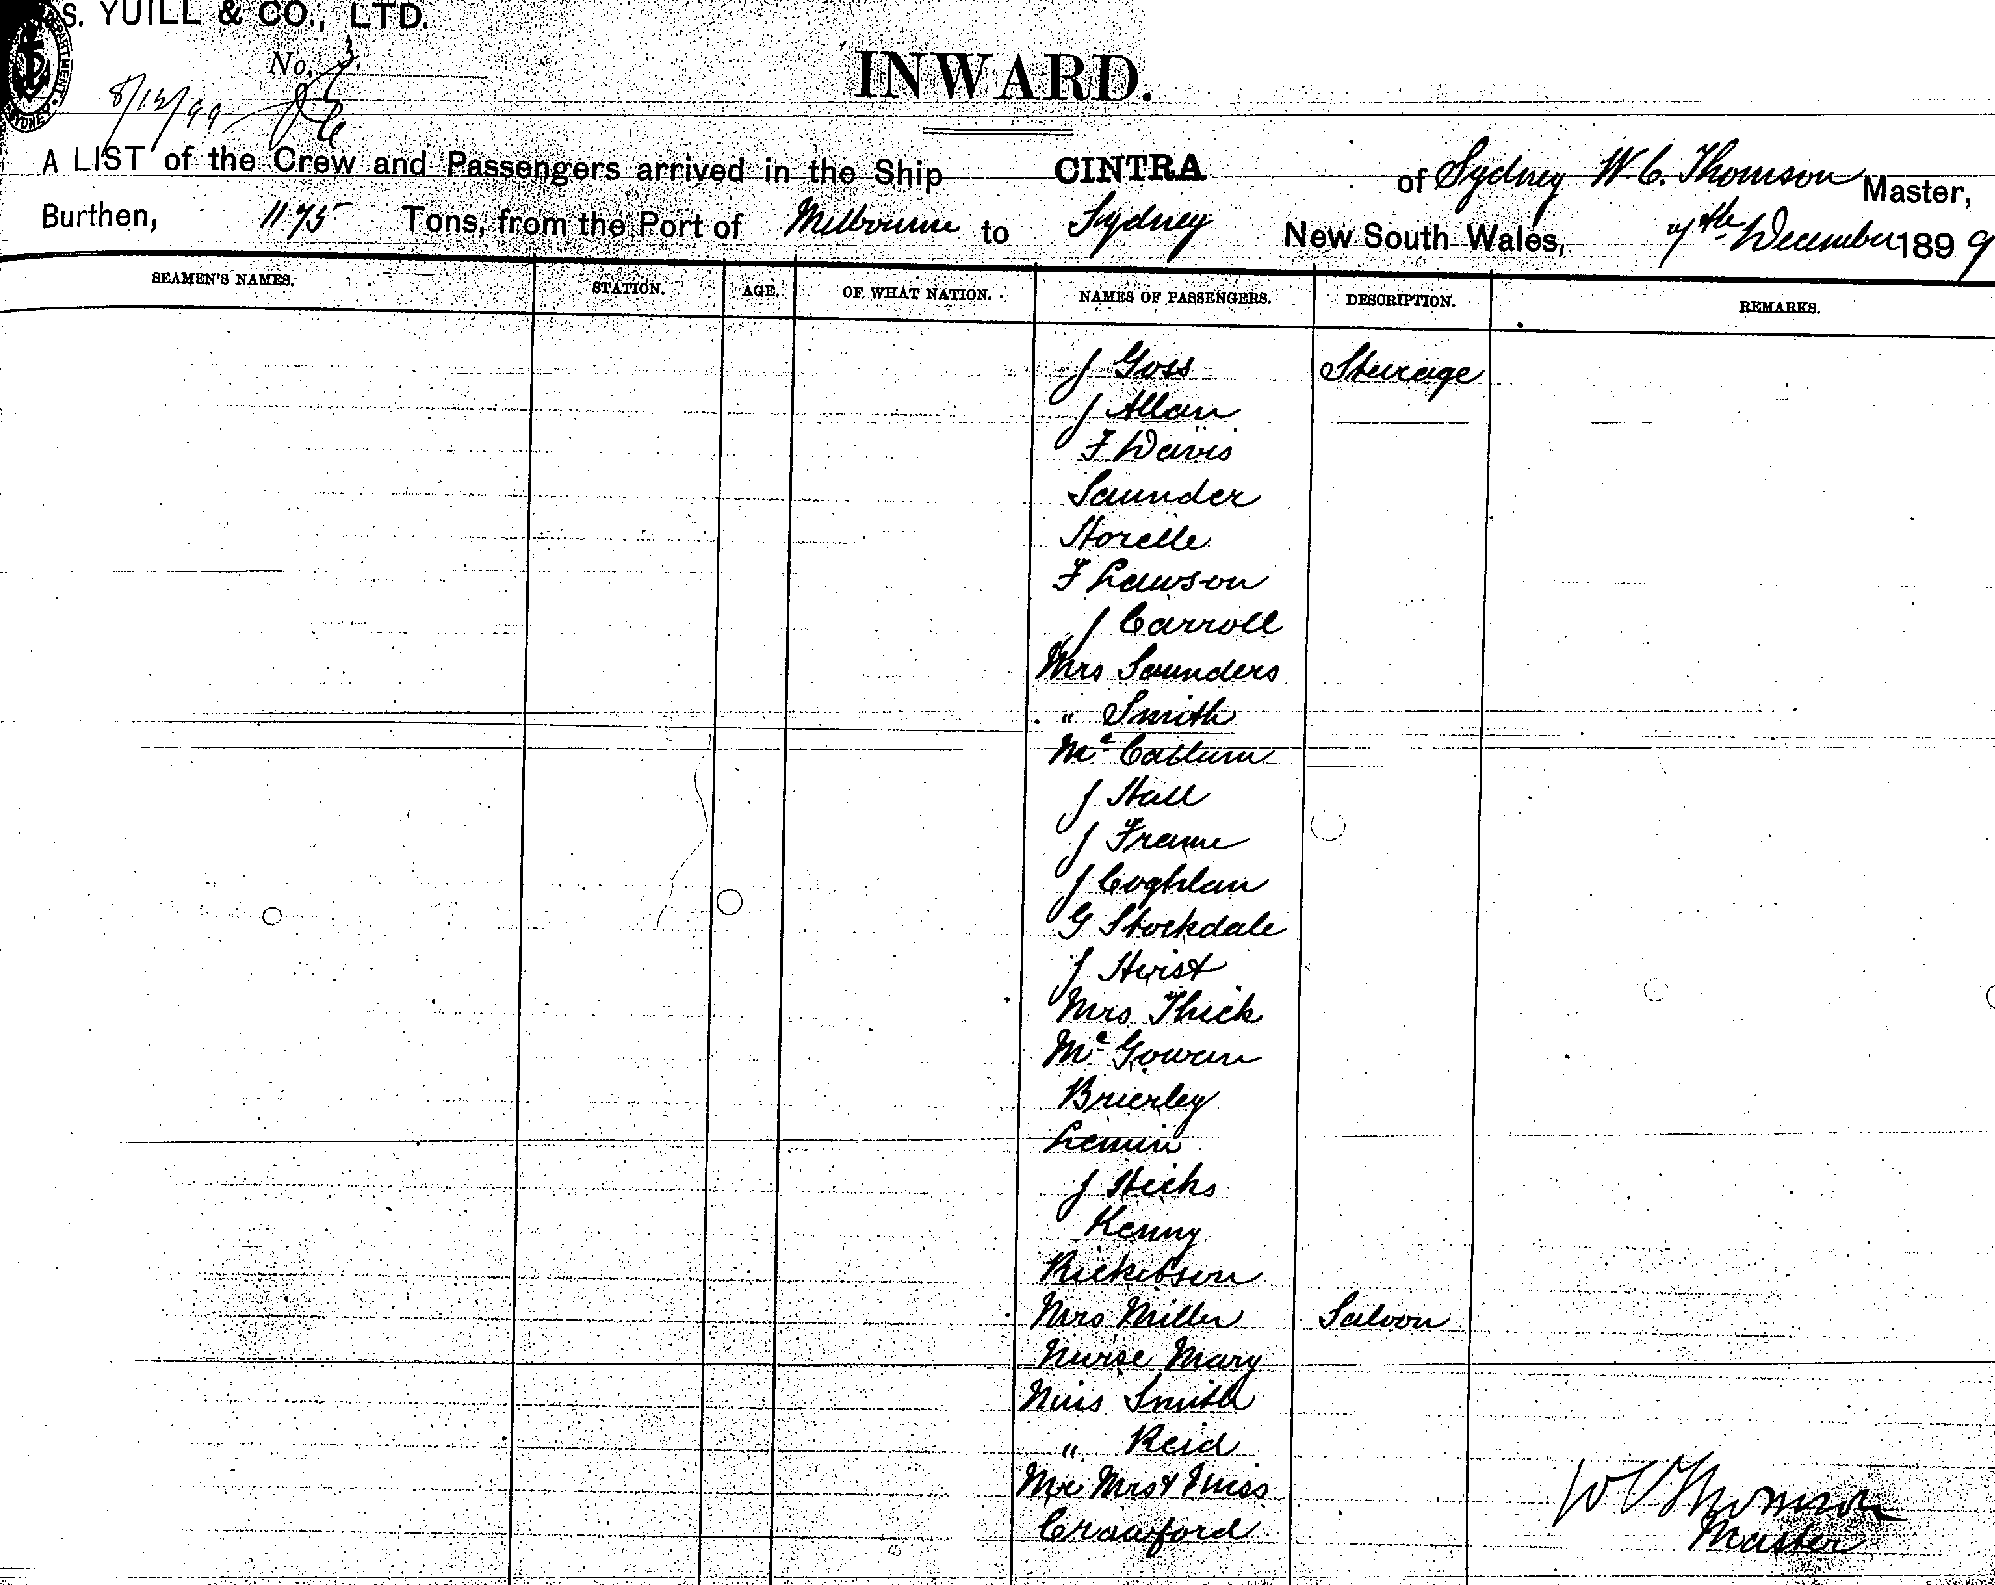 S. YUILL & CO., LTD.
No. 3
8/12/99
INWARD.
A LIST of the Crew and Passengers arrived in the Ship CINTRA of Sydney W. C. Thomson Master,
Burthen, 1175 Tons, from the Port of Melbourne to Sydney New South Wales, 7th December 1899
SEAMEN'S NAMES. STATION. AGE. OF WHAT NATION. NAMES OF PASSENGERS. DESCRIPTION. REMARKS.
J Goss Steerage
J Allan
F Davis
Saunder
Horelle
F Lawson
J Carroll
Mrs Saunders
" Smith
Mc Callum
J Hall
J Frame
J Coghlan
G Stockdale
J Hirst
Mrs Thick
Mc Gowan
Brierley
Lemin
J Hicks
Kenny
Mrs Miller Saloon
Nurse Mary
Miss Smith
" Reid
Mr Mrs & Miss
Crawford
W C Thomson
Master